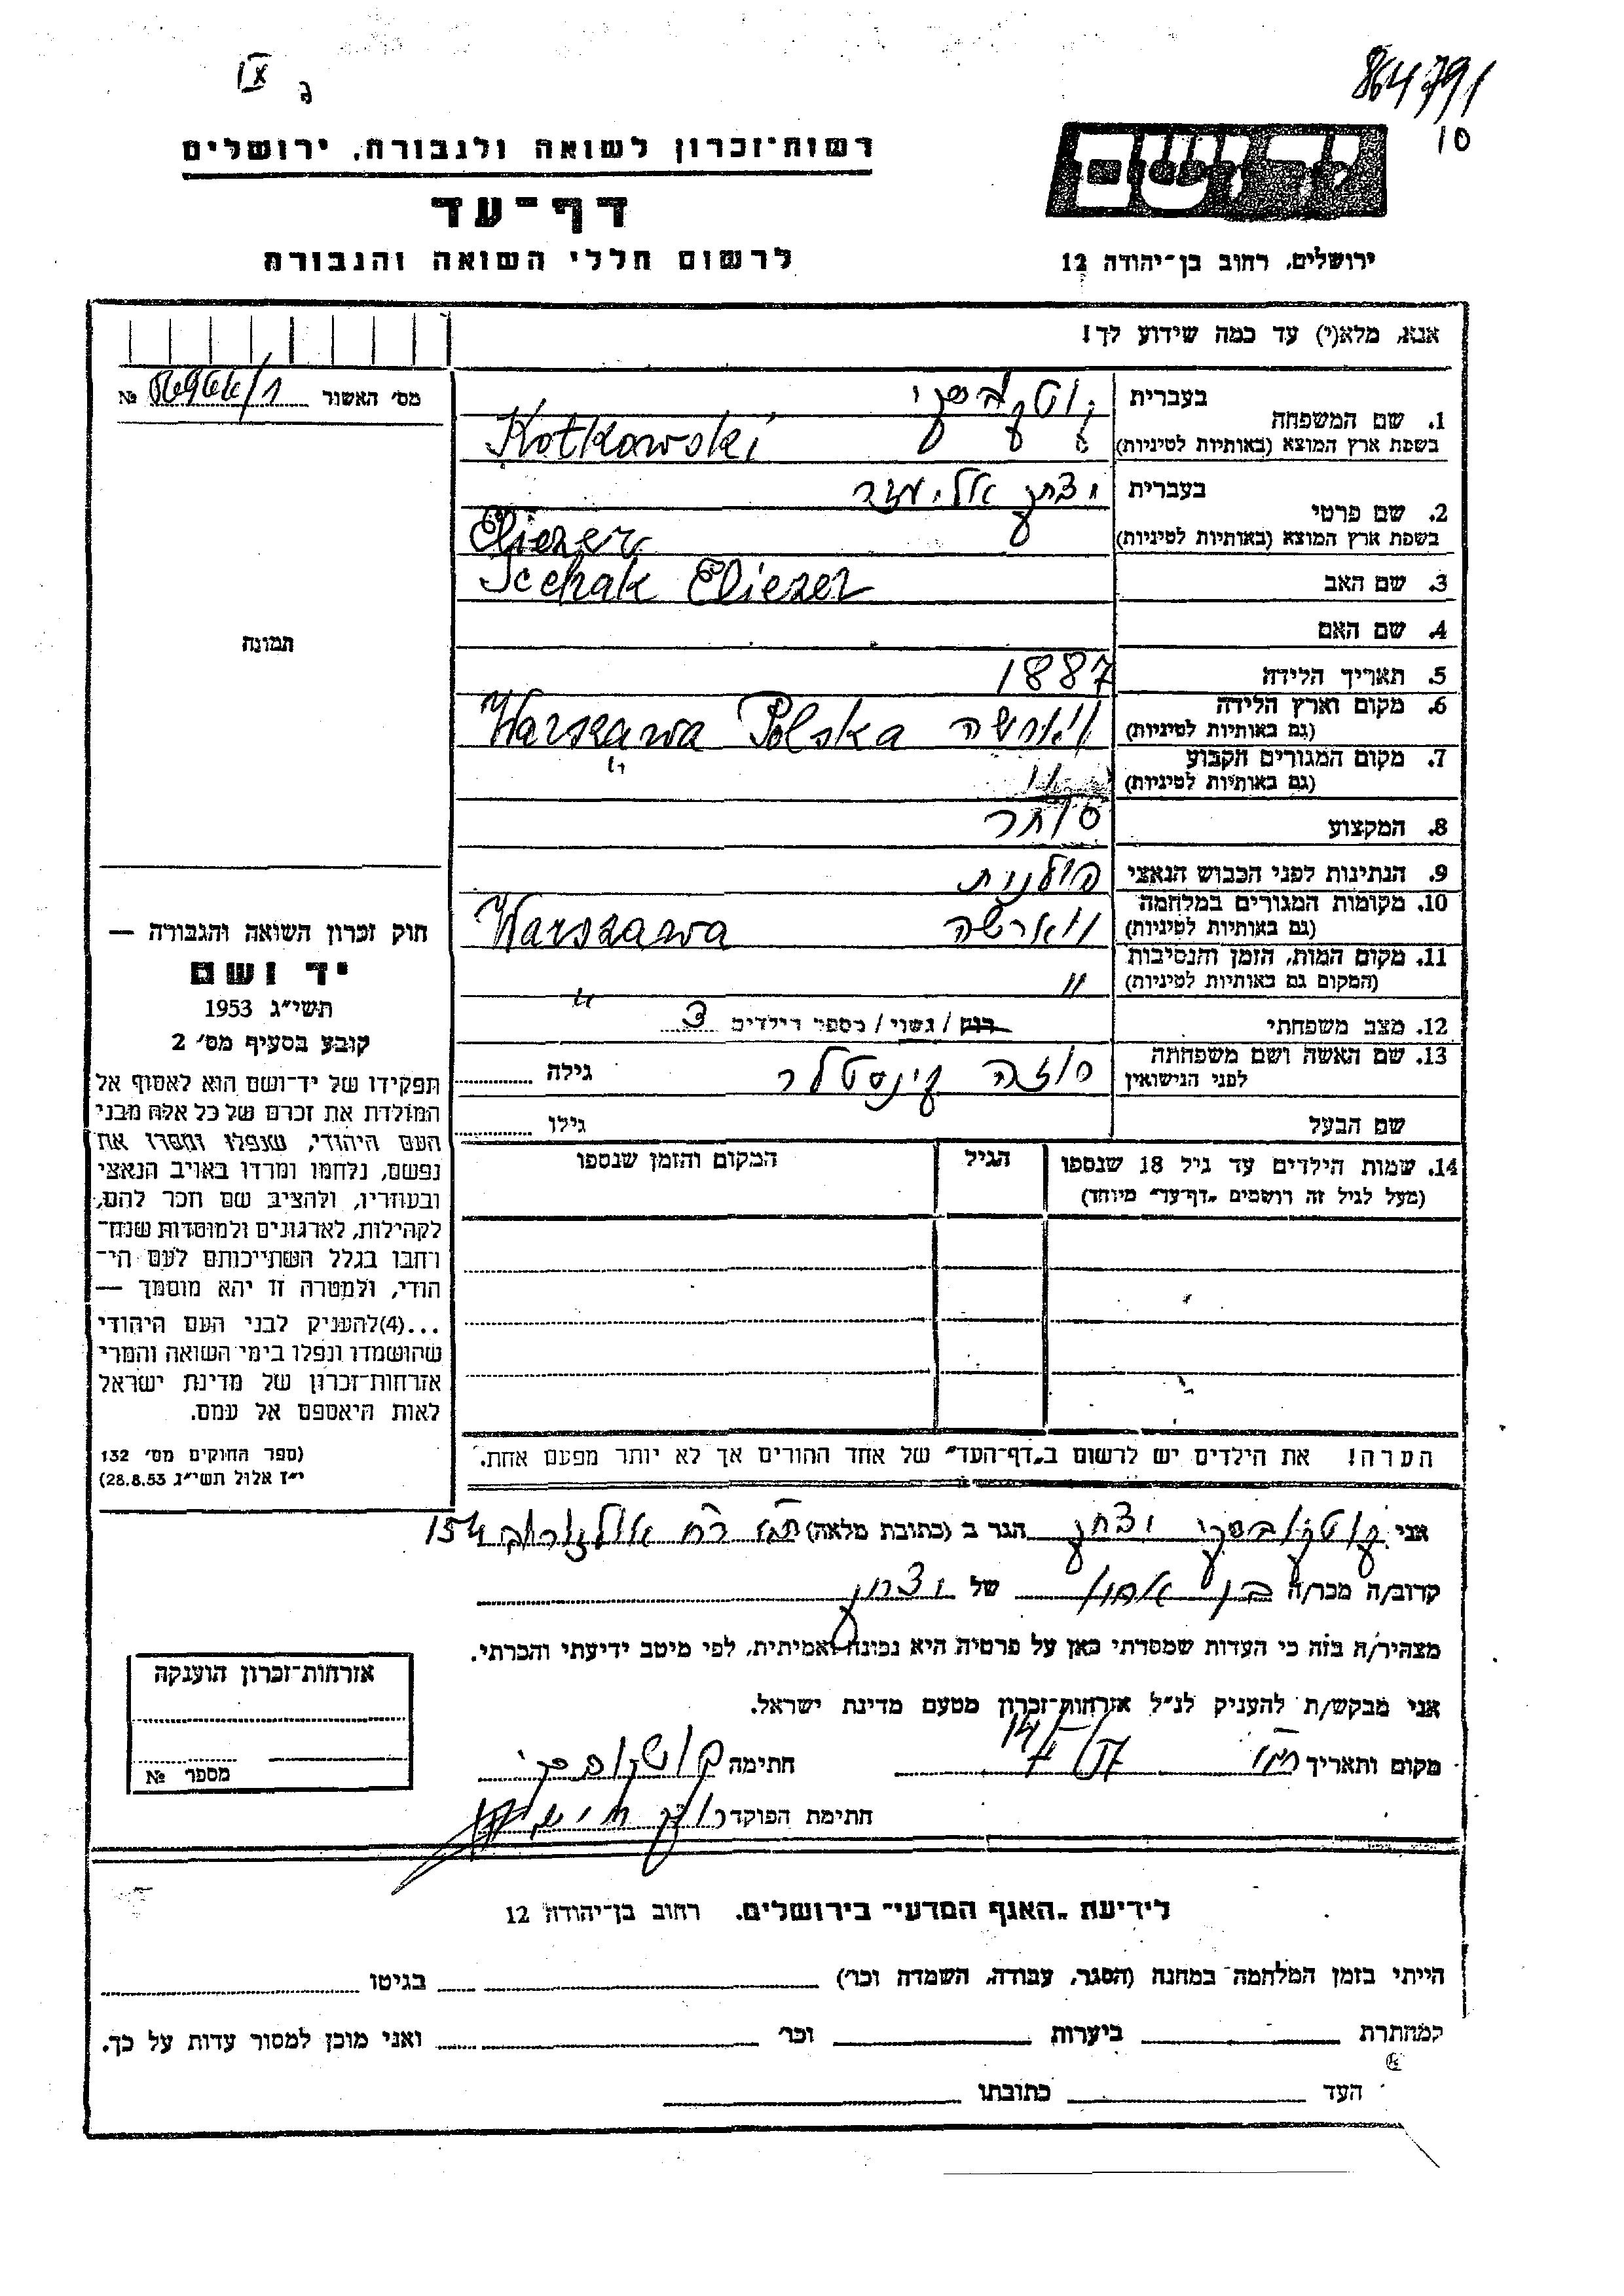 864791
10
IX ג
רשות־זכרון לשואה ולגבורה, ירושלים
דף־עד
לרשום חללי השואה והגבורה
יד ושם
ירושלים, רחוב בן־יהודה 12
אנא, מלא(י) עד כמה שידוע לך!
מס׳ האשור №
1. שם המשפחה
בעברית קוטקובסקי
בשפת ארץ המוצא (באותיות לטיניות) Kotkowski
2. שם פרטי
בעברית יצחק אליעזר
בשפת ארץ המוצא (באותיות לטיניות) Eliezer
3. שם האב Icchak Eliezer
4. שם האם
5. תאריך הלידה 1887
6. מקום וארץ הלידה
(גם באותיות לטיניות) ווארשה Warszawa Polska
7. מקום המגורים הקבוע
(גם באותיות לטיניות) " "
8. המקצוע סוחר
9. הנתינות לפני הכבוש הנאצי פולנית
10. מקומות המגורים במלחמה
(גם באותיות לטיניות) ווארשה Warszawa
11. מקום המות, הזמן והנסיבות
(המקום גם באותיות לטיניות) " "
12. מצב משפחתי רווק / נשוי / מספר הילדים 3
13. שם האשה ושם משפחתה
לפני הנישואין גילה
שם הבעל גילו
14. שמות הילדים עד גיל 18 שנספו
(מעל לגיל זה רושמים „דף־עד״ מיוחד)
הגיל
המקום והזמן שנספו
הערה! את הילדים יש לרשום ב„דף־העד״ של אחד ההורים אך לא יותר מפעם אחת.
תמונה
חוק זכרון השואה והגבורה —
יד ושם
תשי״ג 1953
קובע בסעיף מס׳ 2
תפקידו של יד־ושם הוא לאסוף אל
המולדת את זכרם של כל אלה מבני
העם היהודי, שנפלו ומסרו את
נפשם, נלחמו ומרדו באויב הנאצי
ובעוזריו, ולהציב שם וזכר להם,
לקהילות, לארגונים ולמוסדות שנח־
רחבו בגלל השתייכותם לעם הי־
הודי, ולמטרה זו יהא מוסמך —
...(4)להעניק לבני העם היהודי
שהושמדו ונפלו בימי השואה והמרי
אזרחות־זכרון של מדינת ישראל
לאות היאספם אל עמם.
(ספר החוקים מס׳ 132
י״ז אלול תשי״ג 28.8.53)
אני קוטקובסקי יצחק הגר ב (כתובת מלאה) ת״א רח׳ 154
קרוב/ה מכר/ה בן של יצחק
מצהיר/ה בזה כי העדות שמסרתי כאן על פרטיה היא נכונה ואמיתית, לפי מיטב ידיעתי והכרתי.
אני מבקש/ת להעניק לנ״ל אזרחות־זכרון מטעם מדינת ישראל.
מקום ותאריך ת״א חתימה קוטקובסקי
חתימת הפוקד
אזרחות־זכרון הוענקה
מספר №
לידיעת „האגף המדעי״ בירושלים, רחוב בן־יהודה 12
הייתי בזמן המלחמה במחנה (הסגר, עבודה, השמדה וכו׳) בגיטו
במחתרת ביערות וכו׳ ואני מוכן למסור עדות על כך.
העד כתובתו